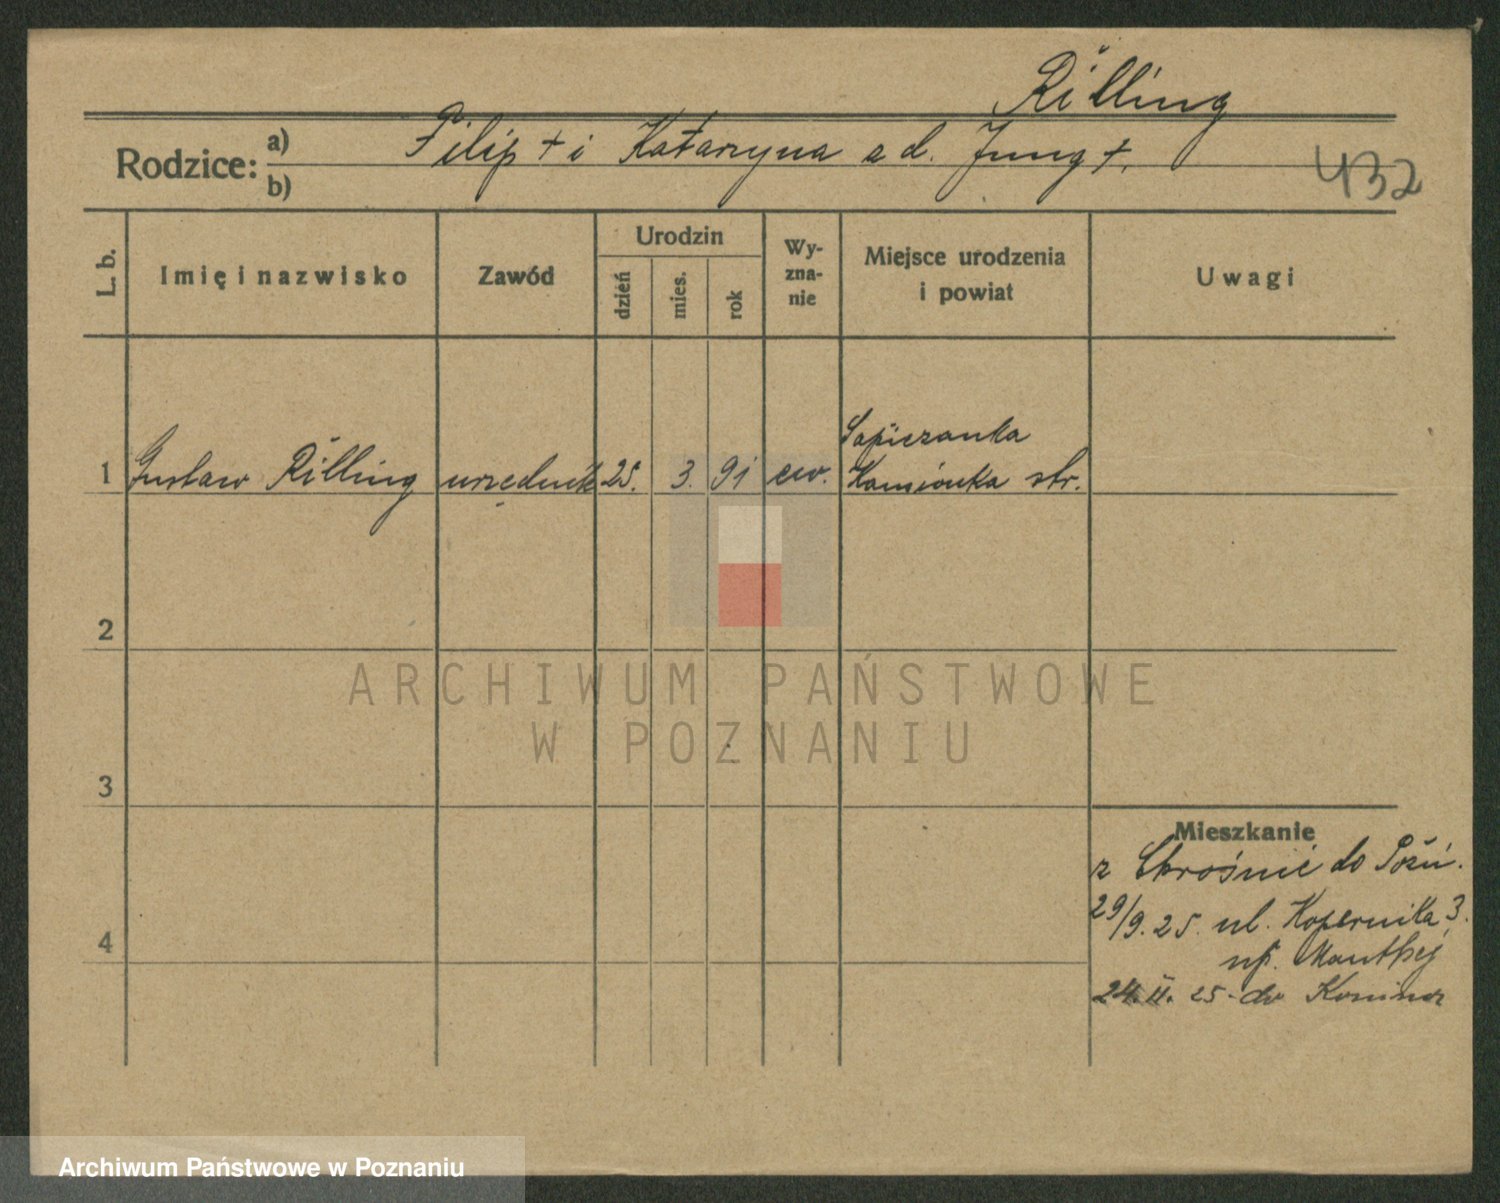 Rilling
Rodzice:
a) Filip + i Katarzyna z d. Jung +.
b)
432
L. b.
Imię i nazwisko
Zawód
Urodzin
dzień
mies.
rok
Wy-
zna-
nie
Miejsce urodzenia
i powiat
Uwagi
Sapieżanka
1 Gustaw Rilling urzędnik 25. 3. 91 ew. Kamionka str.
2
3
4
Mieszkanie
z Chrośnic do Pozń.
29/9. 25. ul. Kopernika 3.
np. Manthej
24. II. 25 do Konina
ARCHIWUM PAŃSTWOWE
W POZNANIU
Archiwum Państwowe w Poznaniu